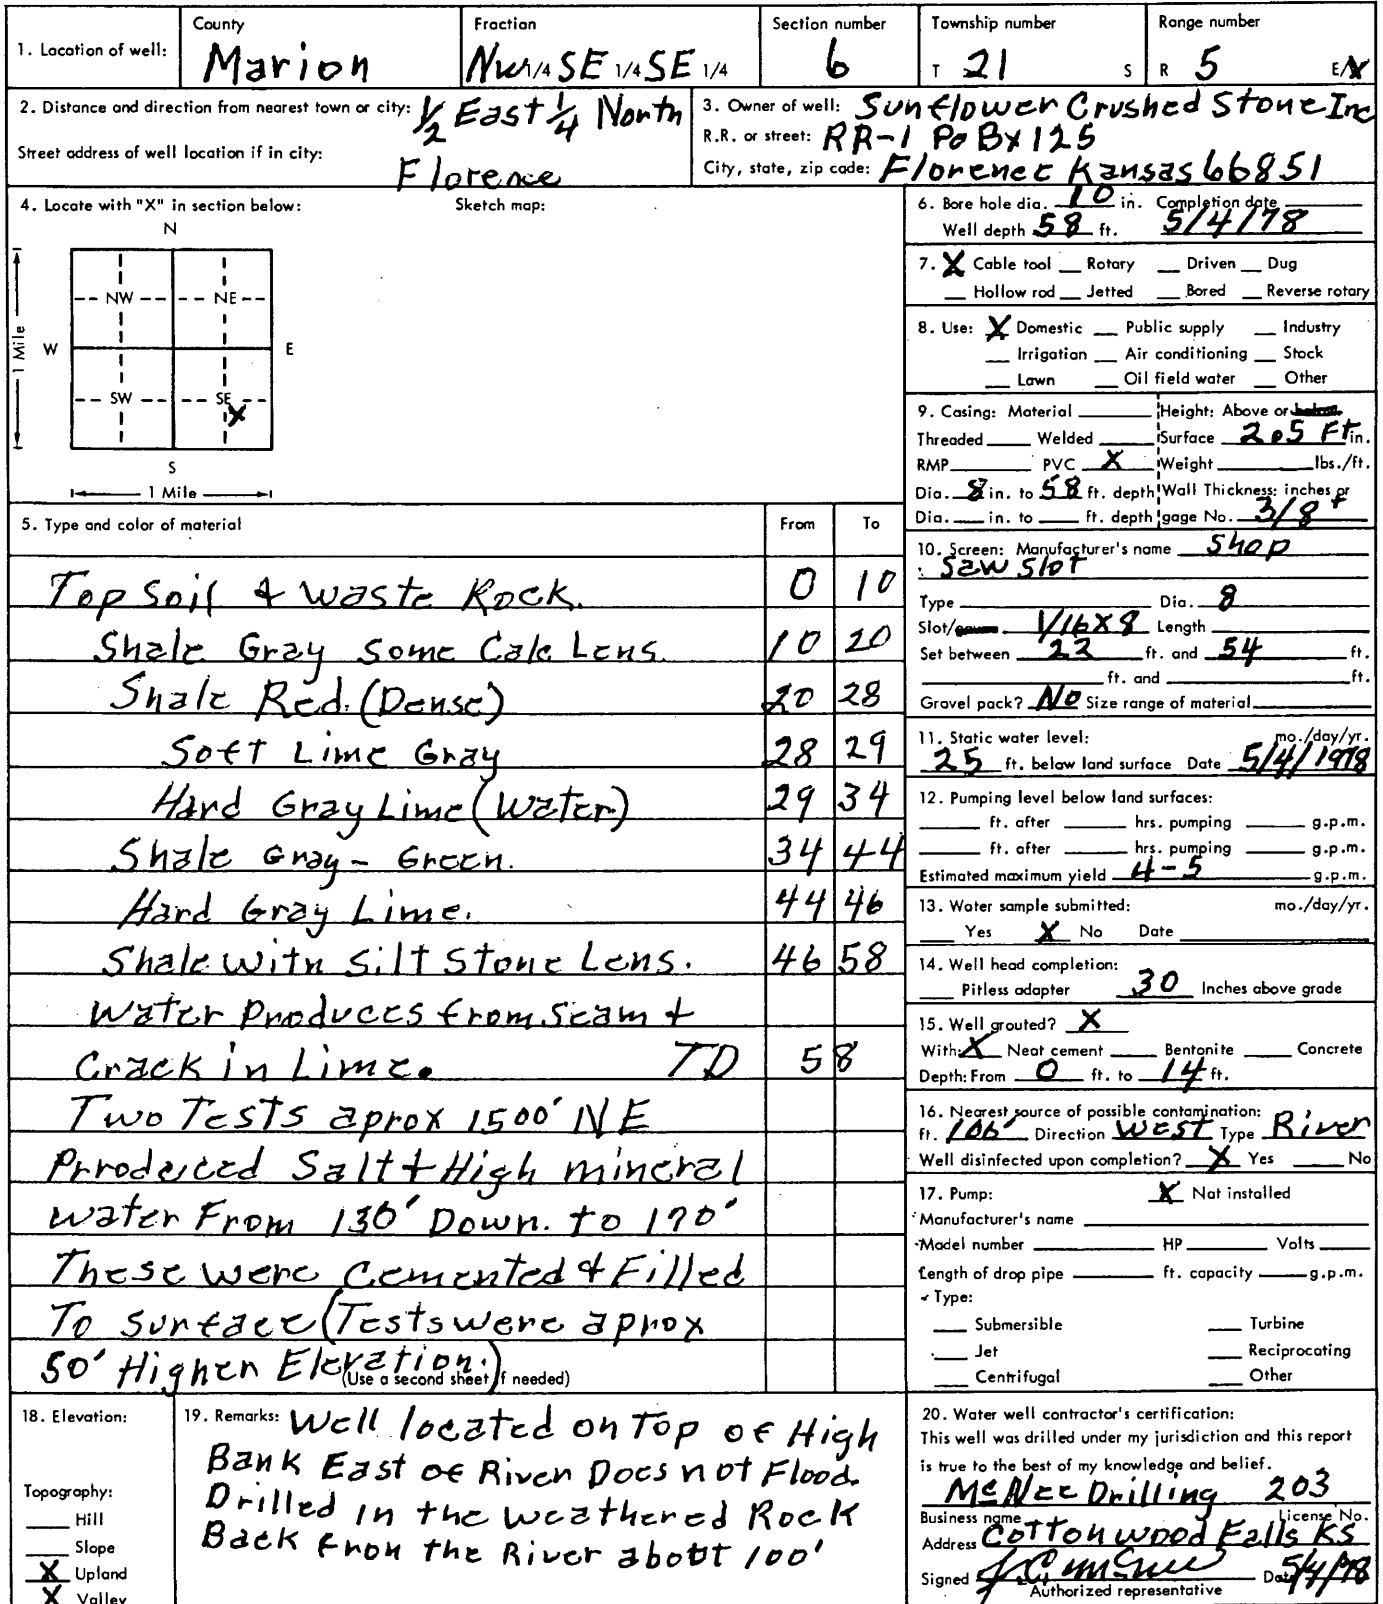 1. Location of well: County Marion Fraction NW 1/4 SE 1/4 SE 1/4 Section number 6 Township number T 21 S Range number R 5 E/W
2. Distance and direction from nearest town or city: 1/2 East 1/4 North
Street address of well location if in city: Florence
3. Owner of well: Sunflower Crushed Stone Inc
R.R. or street: RR-1 Po Bx 125
City, state, zip code: Florence Kansas 66851
4. Locate with "X" in section below: Sketch map:
N
NW NE
W E
1 Mile
SW SE X
S
1 Mile
5. Type and color of material From To
Top Soil & Waste Rock. 0 10
Shale Gray Some Calc Lens. 10 20
Shale Red. (Dense) 20 28
Soft Lime Gray 28 29
Hard Gray Lime (Water) 29 34
Shale Gray - Green. 34 44
Hard Gray Lime. 44 46
Shale With Silt Stone Lens. 46 58
Water Produces from Seam +
Crack in Lime. TD 58
Two Tests aprox 1500' NE
Prroduced Salt + High mineral
water From 130' Down. to 170'
These were Cemented & Filled
To surface (Tests were aprox
50' Higher Elevation.)
(Use a second sheet if needed)
6. Bore hole dia. 10 in. Completion date
Well depth 58 ft. 5/4/78
7. X Cable tool Rotary Driven Dug
Hollow rod Jetted Bored Reverse rotary
8. Use: X Domestic Public supply Industry
Irrigation Air conditioning Stock
Lawn Oil field water Other
9. Casing: Material Height: Above or below
Threaded Welded Surface 2.5 Ft in.
RMP PVC X Weight lbs./ft.
Dia. 8 in. to 58 ft. depth Wall Thickness: inches or
Dia. in. to ft. depth gage No. 3/8 +
10. Screen: Manufacturer's name Shop
Saw Slot
Type Dia. 8
Slot/gauze 1/16 X 8 Length
Set between 22 ft. and 54 ft.
ft. and ft.
Gravel pack? No Size range of material
11. Static water level: mo./day/yr.
25 ft. below land surface Date 5/4/1978
12. Pumping level below land surfaces:
ft. after hrs. pumping g.p.m.
ft. after hrs. pumping g.p.m.
Estimated maximum yield 4-5 g.p.m.
13. Water sample submitted: mo./day/yr.
Yes X No Date
14. Well head completion:
Pitless adapter 30 Inches above grade
15. Well grouted? X
With: X Neat cement Bentonite Concrete
Depth: From 0 ft. to 14 ft.
16. Nearest source of possible contamination:
ft. 100' Direction West Type River
Well disinfected upon completion? X Yes No
17. Pump: X Not installed
Manufacturer's name
Model number HP Volts
Length of drop pipe ft. capacity g.p.m.
Type:
Submersible Turbine
Jet Reciprocating
Centrifugal Other
18. Elevation:
Topography:
Hill
Slope
X Upland
X Valley
19. Remarks: Well located on Top of High
Bank East of River Does not Flood.
Drilled in the Weathered Rock
Back from the River abott 100'
20. Water well contractor's certification:
This well was drilled under my jurisdiction and this report
is true to the best of my knowledge and belief.
McNee Drilling 203
Business name License No.
Address Cottonwood Falls KS
Signed Date 5/4/78
Authorized representative